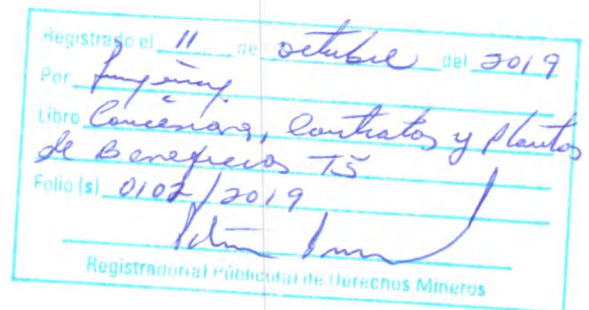 Registrado el 11 de octubre del 2019
Por
Libro Concesiones, Contratos y Plantas
de Beneficios T5
Folio (s) 0102/2019
Registrador(a) Público(a) de Derechos Mineros